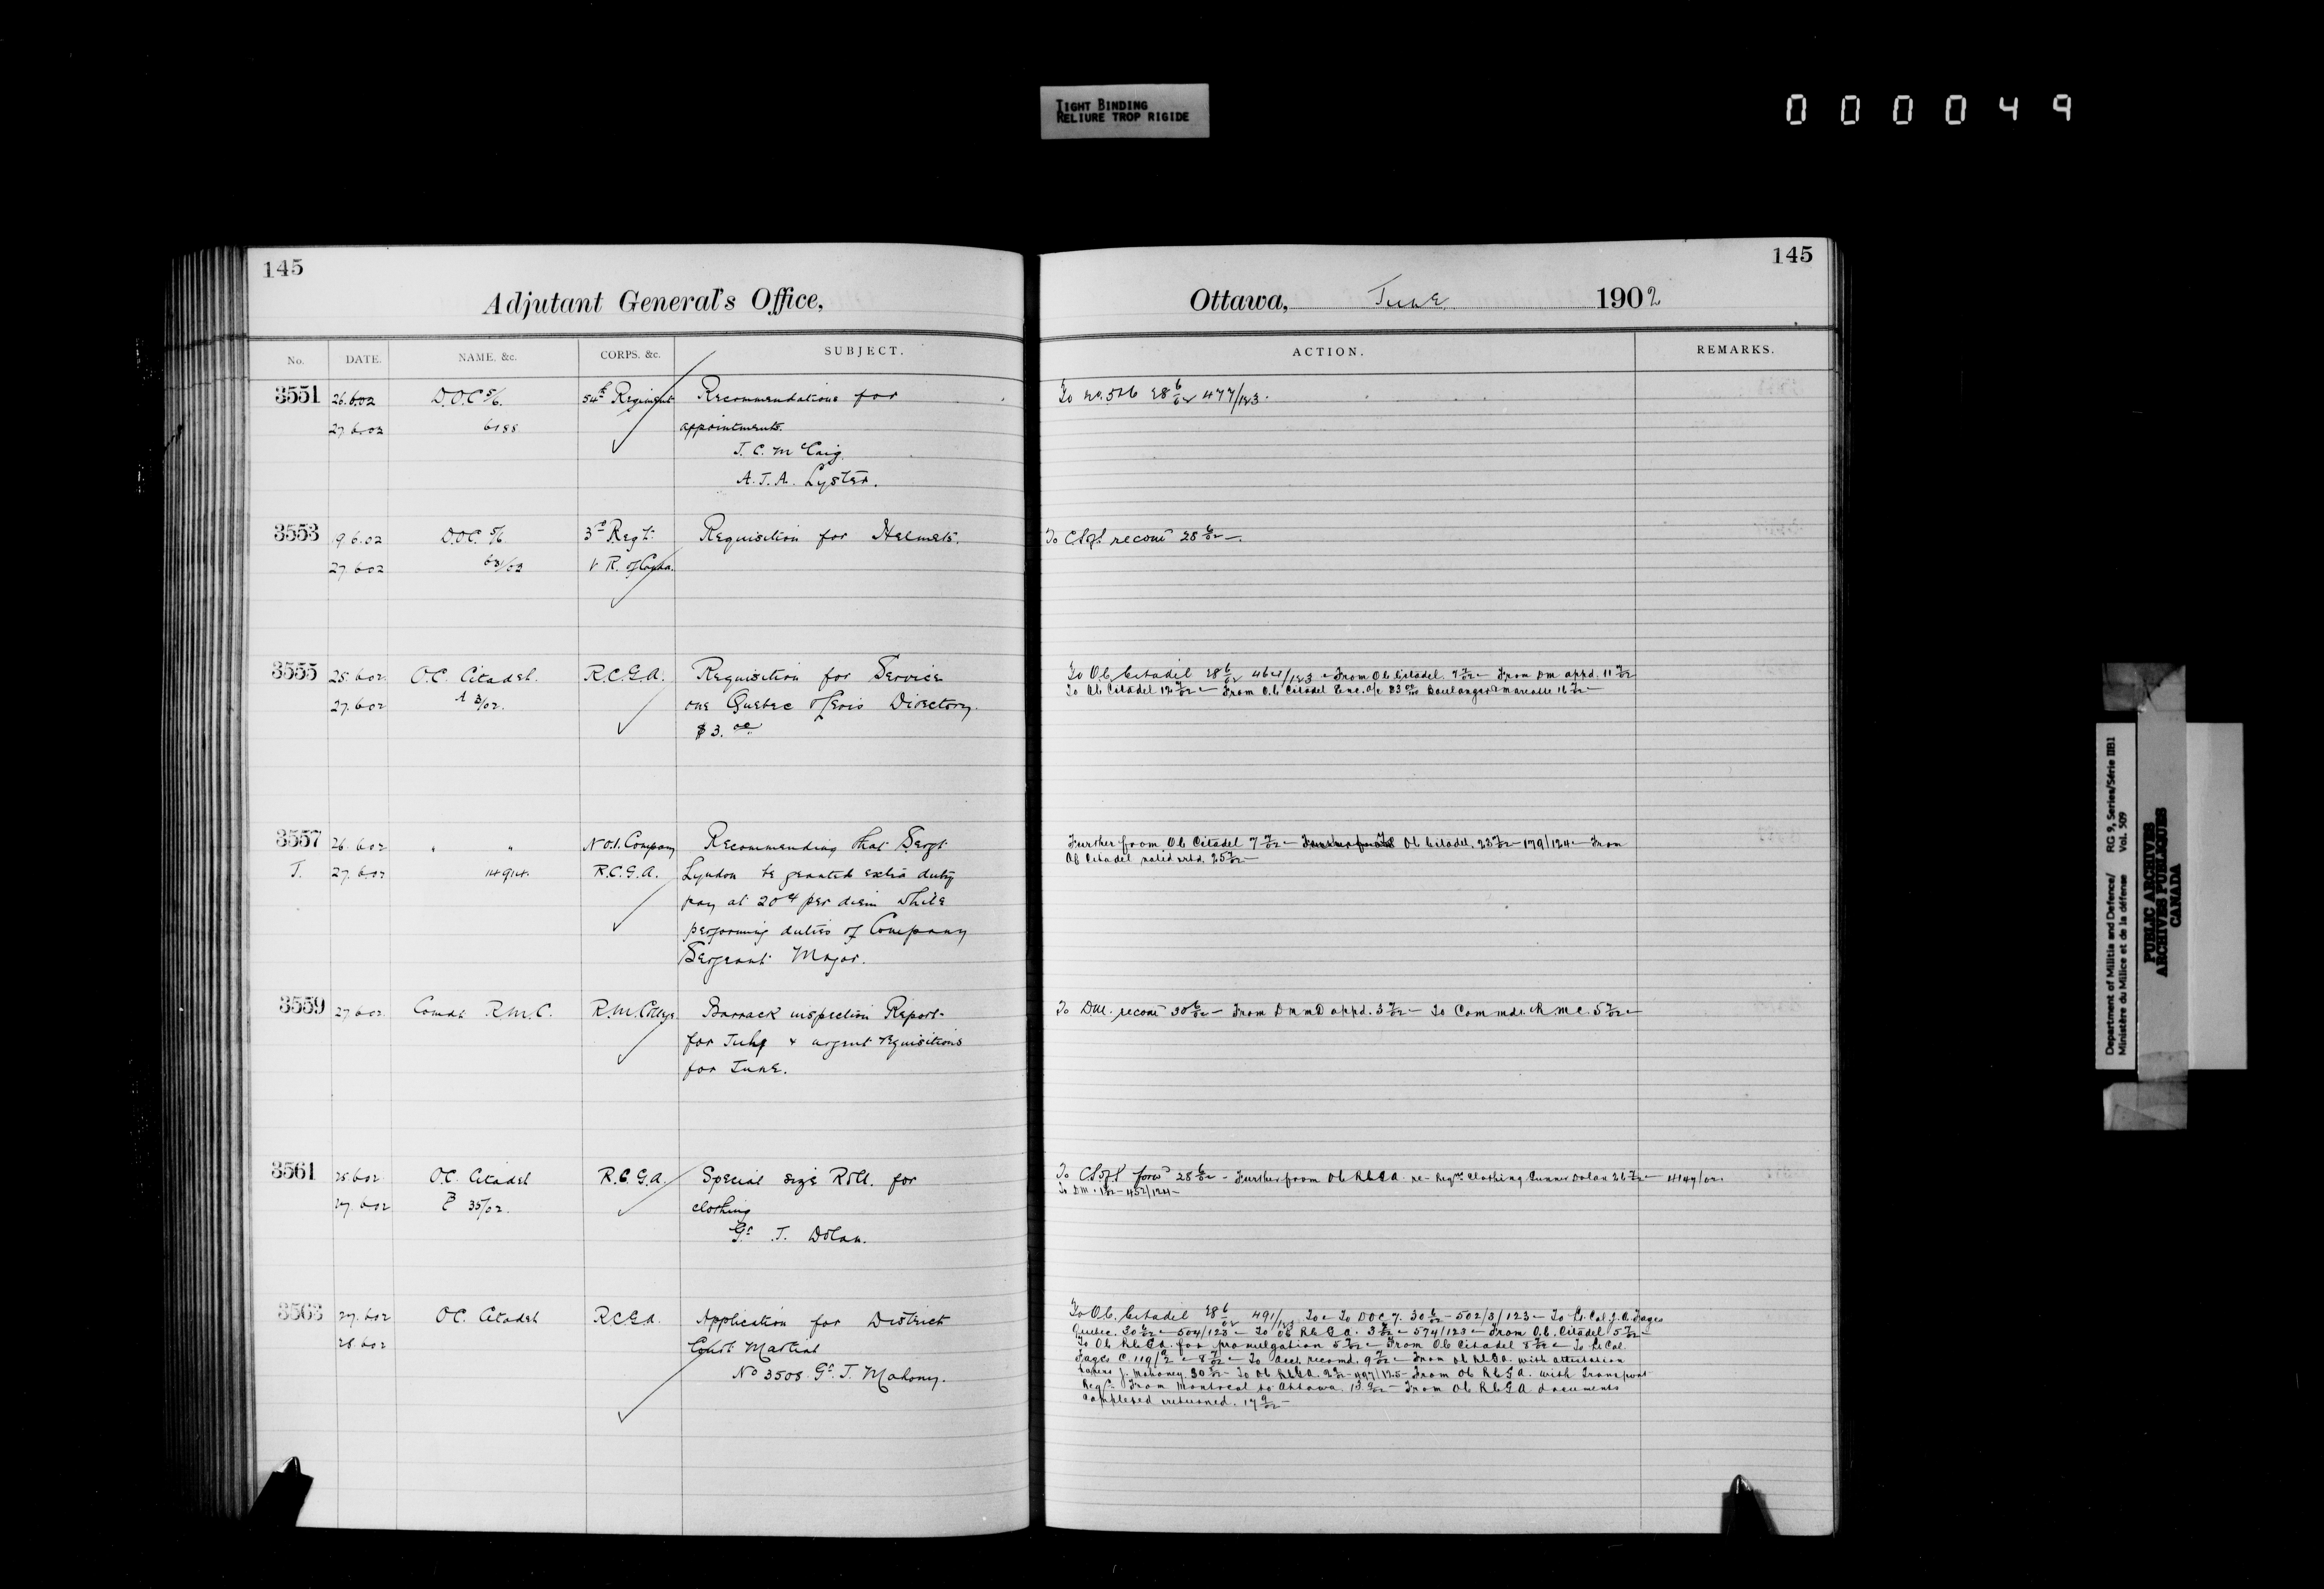 TIGHT BINDING
RELIURE TROP RIGIDE
000049
145
Adjutant General's Office,
No. DATE. NAME, &c. CORPS, &c. SUBJECT.
3551 26.6.02 D.O.C. 5/6. 54th Regiment Recommendations for
27.6.02 6188 appointments.
J. C. McCaig.
A. J. A. Lyster.
3553 19.6.02 D.O.C. 5/6. 3rd Regt. Requisition for Helmets.
27.6.02 63/63 V. R. of Canada.
3555 25.6.02 O.C. Citadel. R.C.G.A. Requisition for Service
27.6.02 A 3/02. one Quebec & Levis Directory.
$3.00
3557 26.6.02 " " No. 1. Company Recommending that Sergt.
J. 27.6.02 R.C.G.A. Lyndon be granted extra duty
pay at 20¢ per diem while
performing duties of Company
Sergeant Major.
3559 27.6.02 Comdt R.M.C. R.M. College Barrack inspection Report
for July & urgent requisitions
for June.
3561 25.6.02 O.C. Citadel R.C.G.A. Special size Roll for
27.6.02 35/02. clothing
Gr. J. Dolan.
3563 27.6.02 O.C. Citadel R.C.G.A. Application for District
28.6.02 Court Martial
No 3508 Gr. J. Mahony.
145
Ottawa, June 1902
ACTION. REMARKS.
To 28 6/02 477/123.
To recom 28 6/02 —
To O.C. Citadel 28 6/02 464/123 — From O.C. Citadel. 7/02 — From DM appd. 11 7/02
To O.C. Citadel 12 7/02 — From O.C. Citadel Enc. a/c $3.00 Boulanger & Marcotte 16 7/02 —
Further from O.C. Citadel 7 7/02 — O.C. Citadel. 23 7/02 — 179/124 — From
O.C. Citadel noted & rtd. 25 7/02 —
To DM. recom 30 6/02 — From DMMD appd. 3 7/02 — To Commdt. R.M.C. 5 7/02 —
To 28 6/02 — Further from O.C. R.C.G.A. re — Reqn. Clothing Gunner Dolan 26 7/02 —
To DM. — 452/124 —
To O.C. Citadel 28 6/02 491/123 To D.O.C. 7. 30 6/02 — 502/3/123 — To Lt. Col. J. A. Fages
Quebec. 30 6/02 — 504/123 — To O.C. R.C.G.A. 3 7/02 — 574/123 — From O.C. Citadel 5 7/02 —
To O.C. R.C.G.A. for promulgation 5 7/02 — From O.C. Citadel 8 7/02 — To Lt. Col.
Fages 8 7/02 — To Acct. recomd. 9 7/02 — From O.C. R.C.G.A. with attestation
papers J. Mahoney. 30 — To O.C. R.C.G.A. — 497/125 — From O.C. R.C.G.A. with Transport
Reqn. from Montreal to Ottawa. 13 9/02 — From O.C. R.C.G.A. documents
completed & returned. 17 9/02 —
Department of Militia and Defence/ RG 9, Series/Série IIB1
Ministère du Milice et de la défense Vol. 509
PUBLIC ARCHIVES
ARCHIVES PUBLIQUES
CANADA